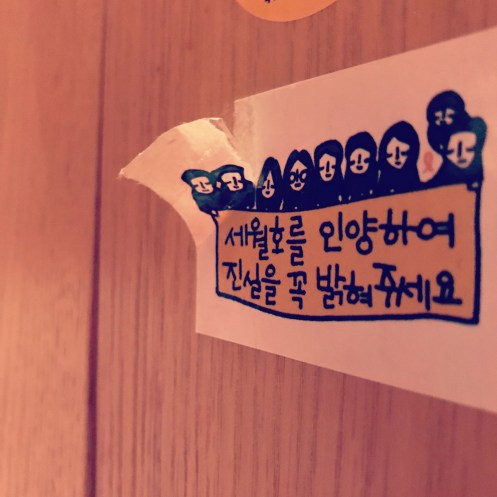 세월호를 인양하여
진실을 꼭 밝혀 주세요